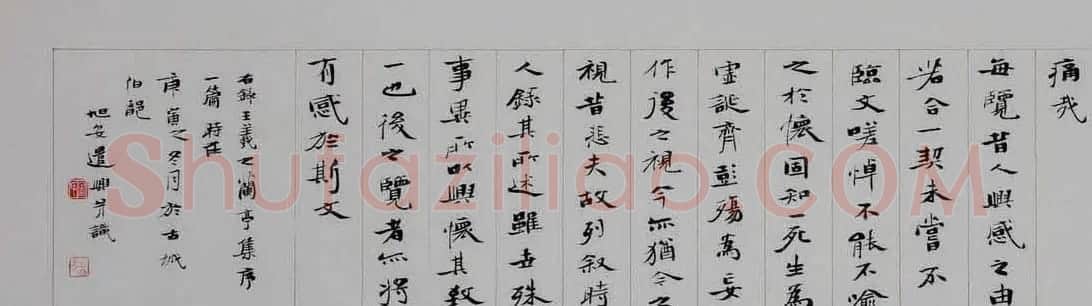 痛哉
每覽昔人興感之由
若合一契未嘗不
臨文嗟悼不能不喻
之於懷固知一死生為
虛誕齊彭殤為妄
作後之視今亦猶今之
視昔悲夫故列敘時
人錄其所述雖世殊
事異所以興懷其致
一也後之覽者亦將
有感於斯文
右錄王羲之蘭亭集序
一篇時在
庚寅之冬月於古城
伯韶
旭安遣興並識
Shufaziliao.COM